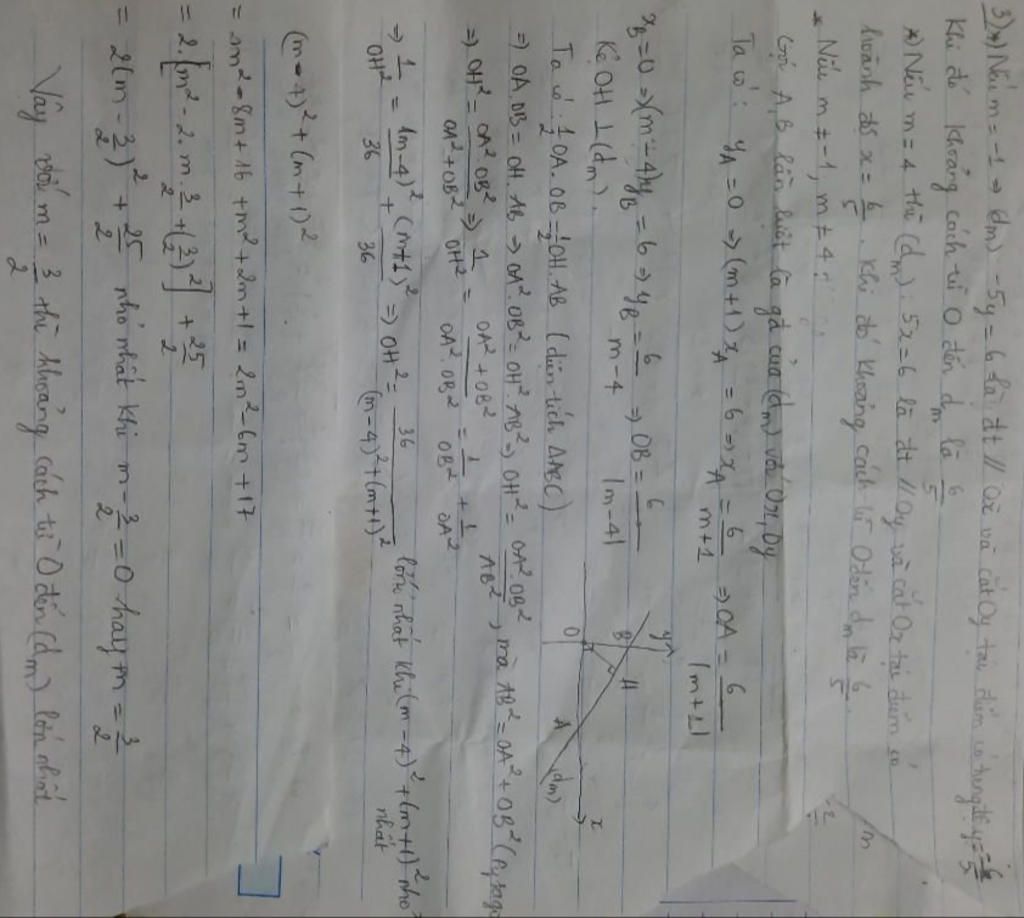 3) *) Nếu m = -1 => dm) -5y = 6 là đt // Ox và cắt Oy tại điểm có tung độ y = -6/5
Khi đó khoảng cách từ O đến dm là 6/5
*) Nếu m = 4 thì (dm): 5x = 6 là đt // Oy và cắt Ox tại điểm có
hoành độ x = 6/5. Khi đó khoảng cách từ O đến dm là 6/5.
* Nếu m ≠ -1, m ≠ 4:
Gọi A, B lần lượt là gđ của (dm) với Ox, Oy
Ta có: yA = 0 => (m+1)xA = 6 => xA = 6/(m+1) => OA = 6/|m+1|
xB = 0 => (m-4)yB = 6 => yB = 6/(m-4) => OB = 6/|m-4|
Kẻ OH ⊥ (dm).
Ta có: 1/2 OA.OB = 1/2 OH.AB (diện tích ΔABC)
=> OA.OB = OH.AB => OA².OB² = OH².AB² => OH² = OA².OB²/AB², mà AB² = OA² + OB² (Pytago
=> OH² = OA² OB²/(OA² + OB²) => 1/OH² = (OA² + OB²)/(OA².OB²) = 1/OB² + 1/OA²
=> 1/OH² = (m-4)²/36 + (m+1)²/36 => OH² = 36/((m-4)² + (m+1)²) lớn nhất khi (m-4)² + (m+1)² nhỏ
nhất
(m-4)² + (m+1)²
= m² - 8m + 16 + m² + 2m + 1 = 2m² - 6m + 17
= 2.[m² - 2.m.3/2 + (3/2)²] + 25/2
= 2(m - 3/2)² + 25/2 nhỏ nhất khi m - 3/2 = 0 hay m = 3/2
Vậy với m = 3/2 thì khoảng cách từ O đến (dm) lớn nhất
y
B
H
O
A
(dm)
x